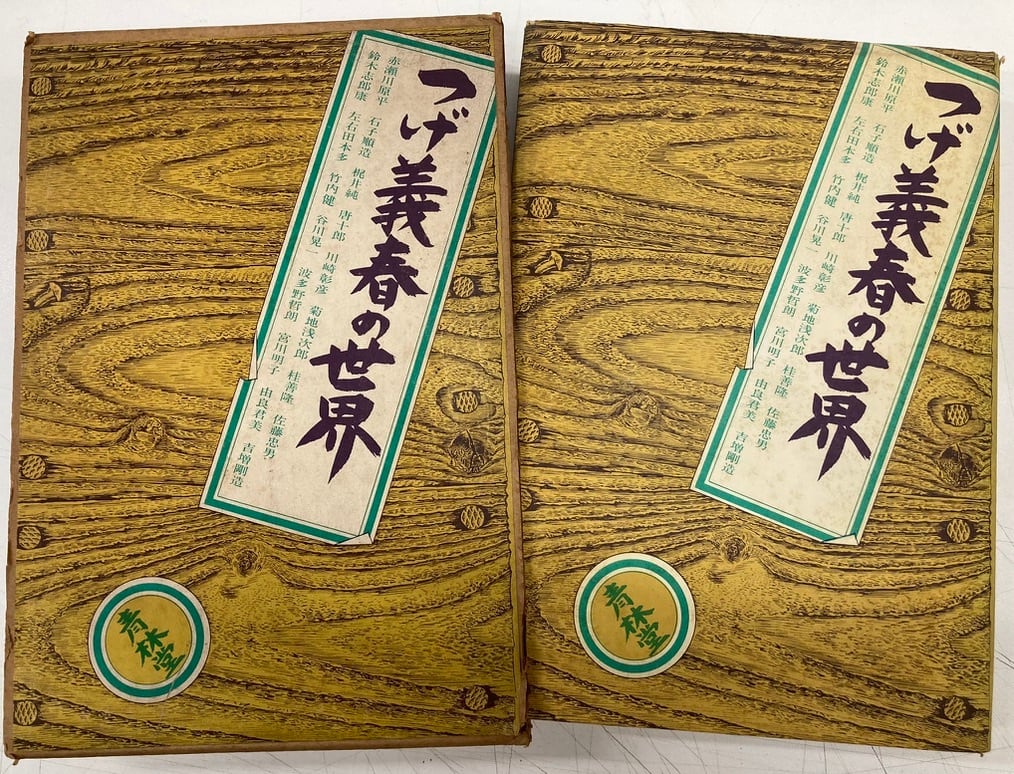 つげ義春の世界
赤瀬川原平 石子順造 梶井純 唐十郎 川崎彰彦 菊地浅次郎 桂善隆 佐藤忠男
鈴木志郎康 左右田本多 竹内健 谷川晃一 波多野哲朗 宮川明子 由良君美 吉増剛造
青林堂
つげ義春の世界
赤瀬川原平 石子順造 梶井純 唐十郎 川崎彰彦 菊地浅次郎 桂善隆 佐藤忠男
鈴木志郎康 左右田本多 竹内健 谷川晃一 波多野哲朗 宮川明子 由良君美 吉増剛造
青林堂